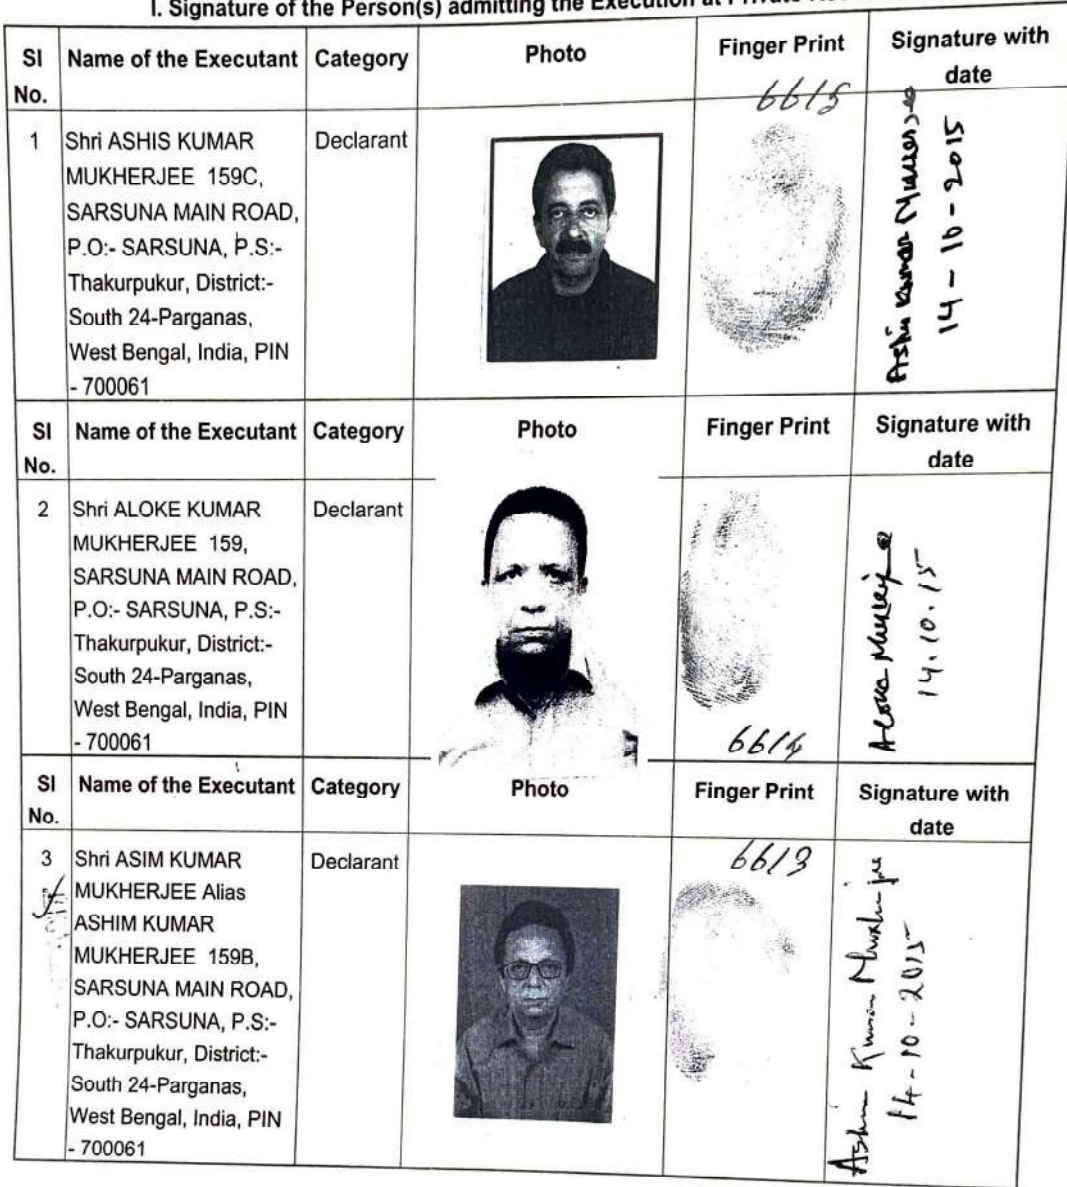 I. Signature of the Person(s) admitting the Execution at Private
Sl No. Name of the Executant Category Photo Finger Print Signature with date
6615
1 Shri ASHIS KUMAR Declarant
MUKHERJEE 159C,
SARSUNA MAIN ROAD,
P.O:- SARSUNA, P.S:-
Thakurpukur, District:-
South 24-Parganas,
West Bengal, India, PIN
- 700061
Ashis Kumar Mukherjee
14-10-2015
Sl No. Name of the Executant Category Photo Finger Print Signature with date
2 Shri ALOKE KUMAR Declarant
MUKHERJEE 159,
SARSUNA MAIN ROAD,
P.O:- SARSUNA, P.S:-
Thakurpukur, District:-
South 24-Parganas,
West Bengal, India, PIN
- 700061
6614
14.10.15
Sl No. Name of the Executant Category Photo Finger Print Signature with date
6613
3 Shri ASIM KUMAR Declarant
MUKHERJEE Alias
ASHIM KUMAR
MUKHERJEE 159B,
SARSUNA MAIN ROAD,
P.O:- SARSUNA, P.S:-
Thakurpukur, District:-
South 24-Parganas,
West Bengal, India, PIN
- 700061
Ashim Kumar Mukherjee
14-10-2015